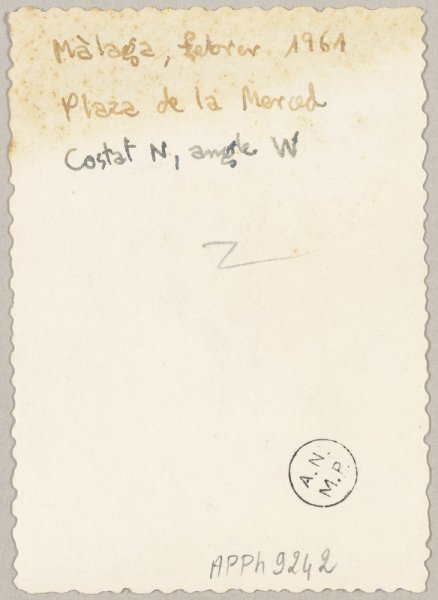 Màlaga, febrer 1961
Plaza de la Merced
Costat N, angle W
A.N.
M.P.
APPh 9242